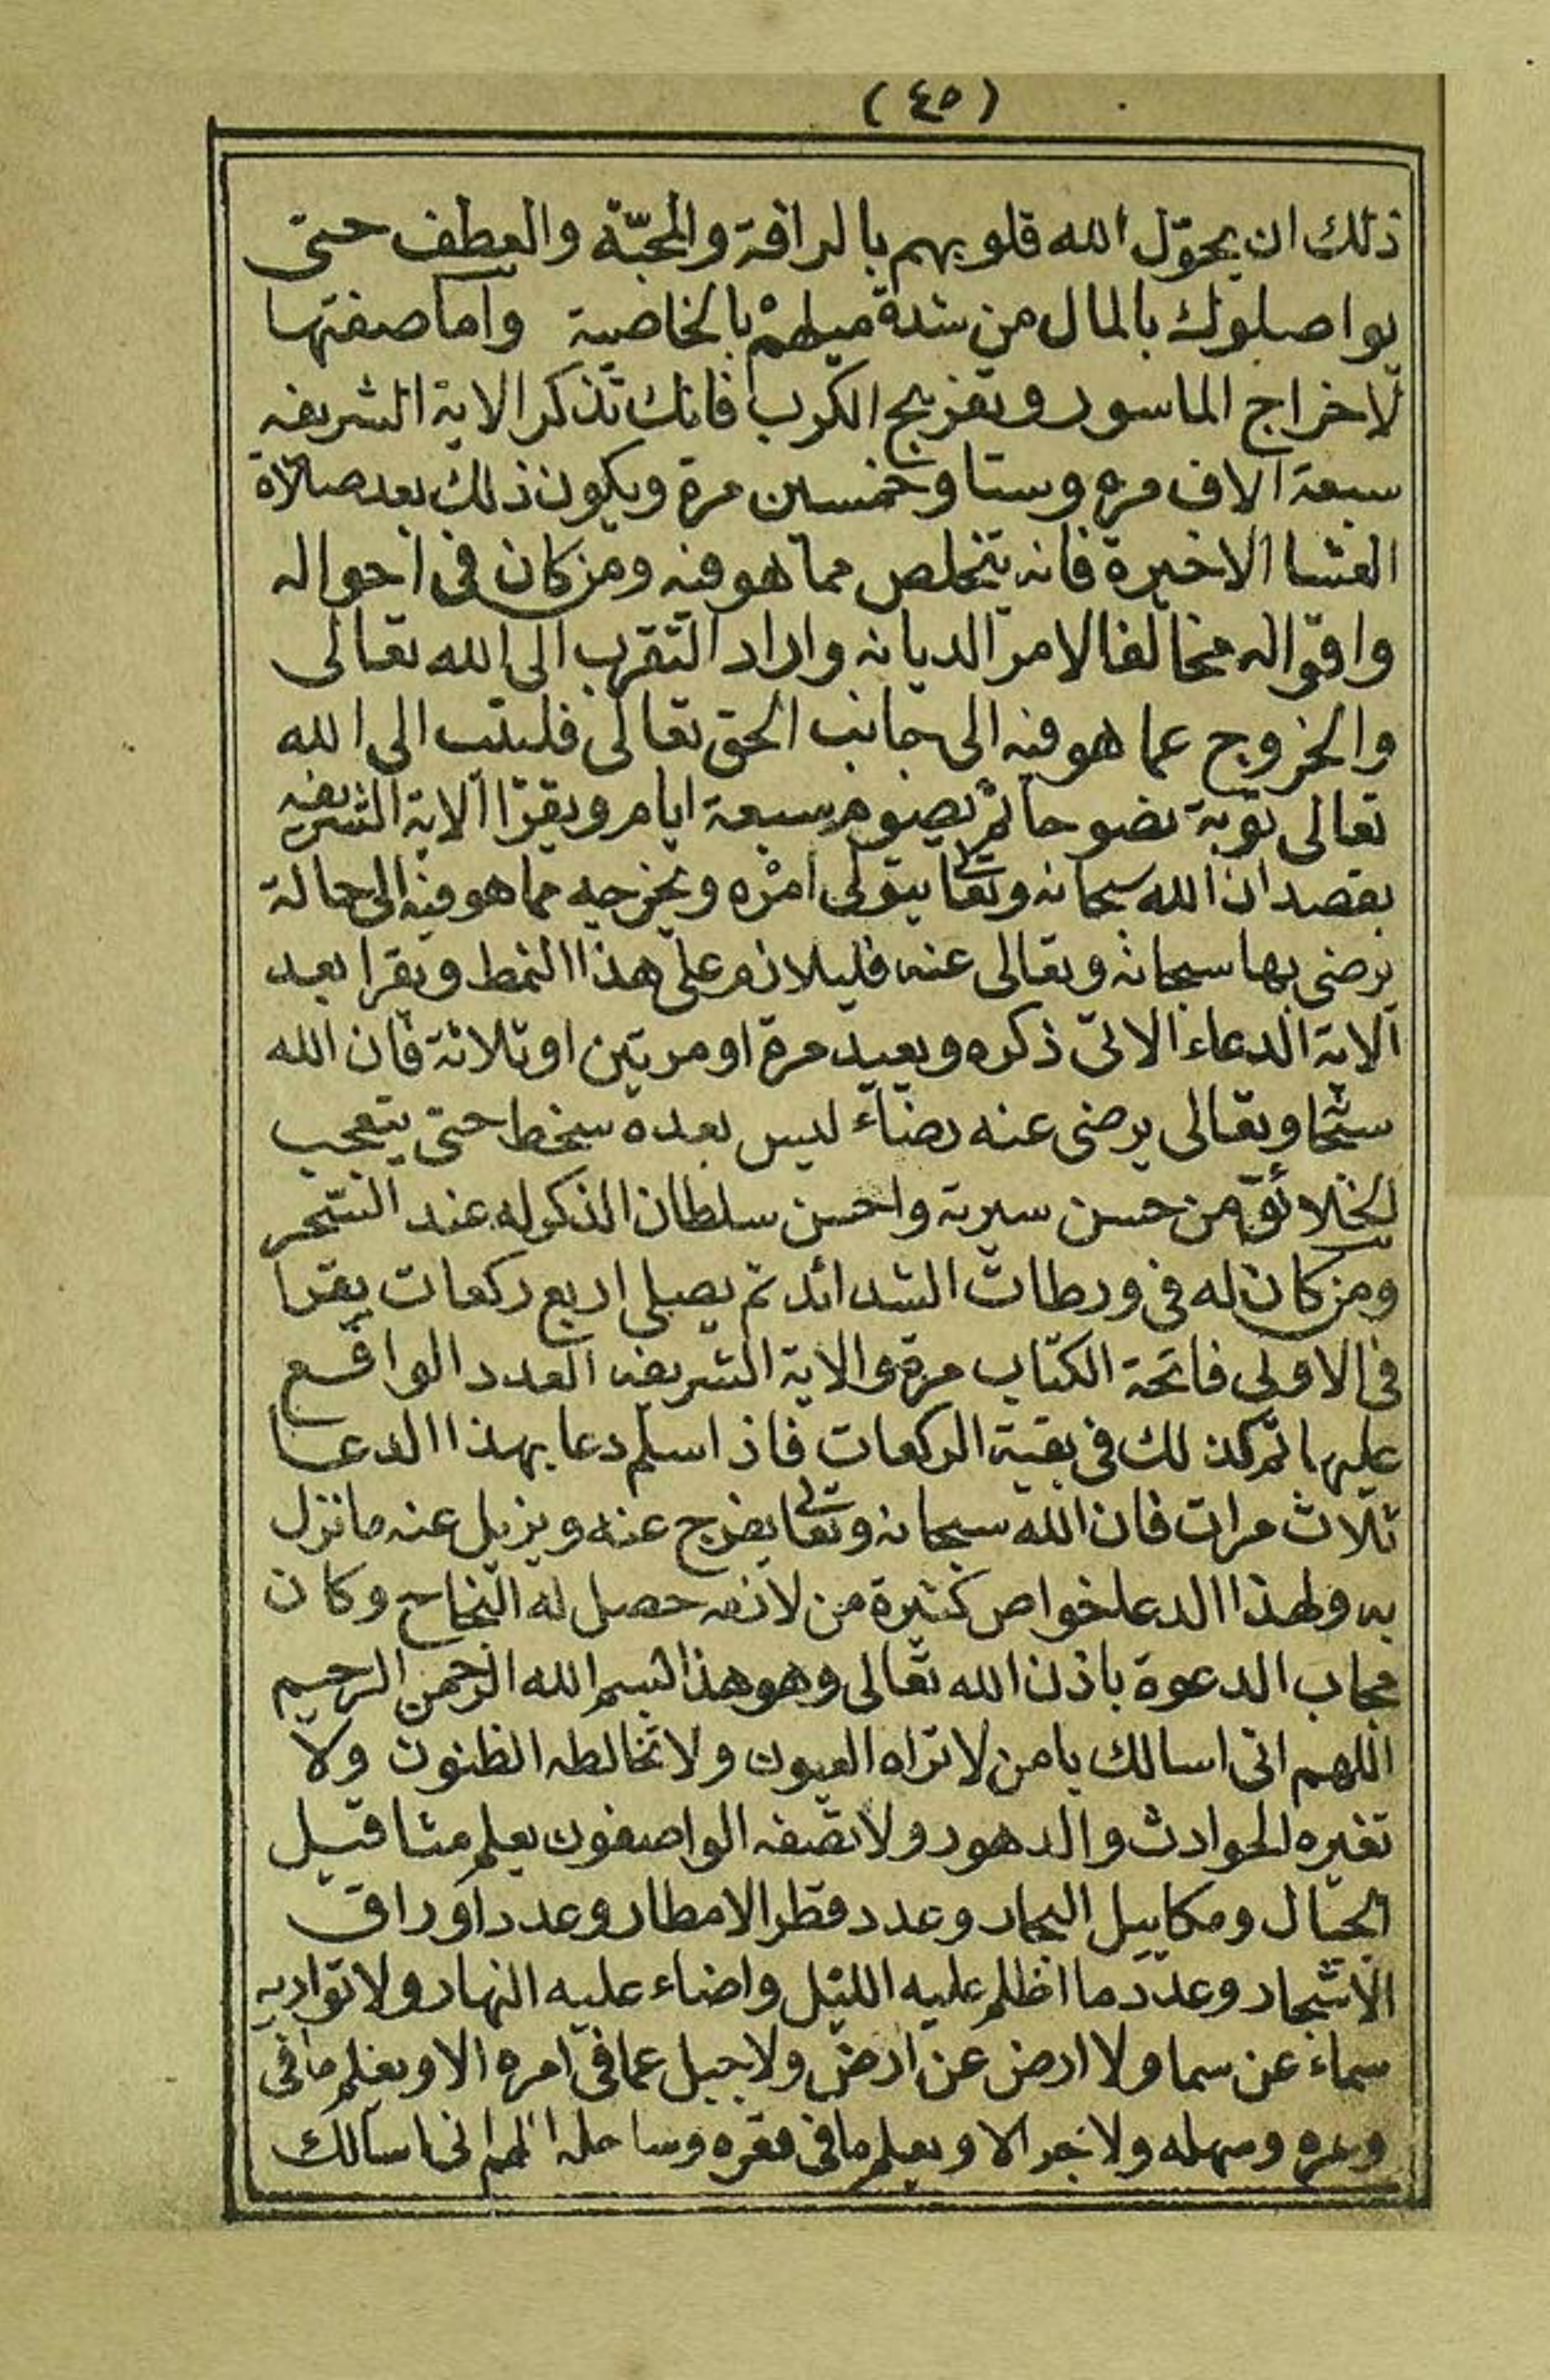 (٤٥)
ذلك ان يحوّل الله قلوبهم بالرافة والمحبّة والعطف حتى
يواصلوك بالمال من شدة ميلهم بالخاصية واما صفتها
لاخراج الماسور وتفريج الكرب فانك تذكر الاية الشريفة
سبعة الاف مره وستا وخمسين مرة ويكون ذلك بعد صلاة
العشا الاخيرة فانه يتخلص مما هو فيه ومن كان في احواله
واقواله مخالفا لامر الديانه واراد التقرب الى الله تعالى
والخروج عما هو فيه الى جانب الحق تعالى فليتب الى الله
تعالى توبة نضوحا ثم يصوم سبعة ايام ويقرا الاية الشريفه
بقصد ان الله سبحانه وتعالى يتولى امره ويخرجه مما هو فيه الى حالة
يرضى بها سبحانه وتعالى عنه فليلازم على هذا النمط ويقرا بعد
الاية الدعاء الاتى ذكره ويعيد مرة او مرتين او ثلاثة فان الله
سبحا وتعالى يرضى عنه رضاء ليس بعده سخط حتى يتعجب
الخلائق من حسن سيرته واحسن سلطان الذكر له عند
ومن كان له في ورطات الشدائد ثم يصلي اربع ركعات يقرا
في الاولى فاتحة الكتاب مرة والاية الشريفه العدد الواقع
عليها ثم كذلك في بقية الركعات فاذا سلم دعا بهذا الدعا
ثلاث مرات فان الله سبحانه وتعالى يفرج عنه ويزيل عنه ما نزل
به ولهذا الدعا خواص كثيرة من لازمه حصل له النجاح وكان
مجاب الدعوة باذن الله تعالى وهو هذا بسم الله الرحمن الرحيم
اللهم انى اسالك يا من لا تراه العيون ولا تخالطه الظنون ولا
تغيره الحوادث والدهور ولا تصفه الواصفون يعلم مثاقيل
الجبال ومكاييل البحار وعدد قطر الامطار وعدد اوراق
الاشجار وعدد ما اظلم عليه الليل واضاء عليه النهار ولا تواريه
سماء عن سما ولا ارض عن ارض ولا جبل عما في امره الا ويعلم ما في
وعره وسهله ولا بحر الا ويعلم ما في قعره وساحله اللهم انى اسالك